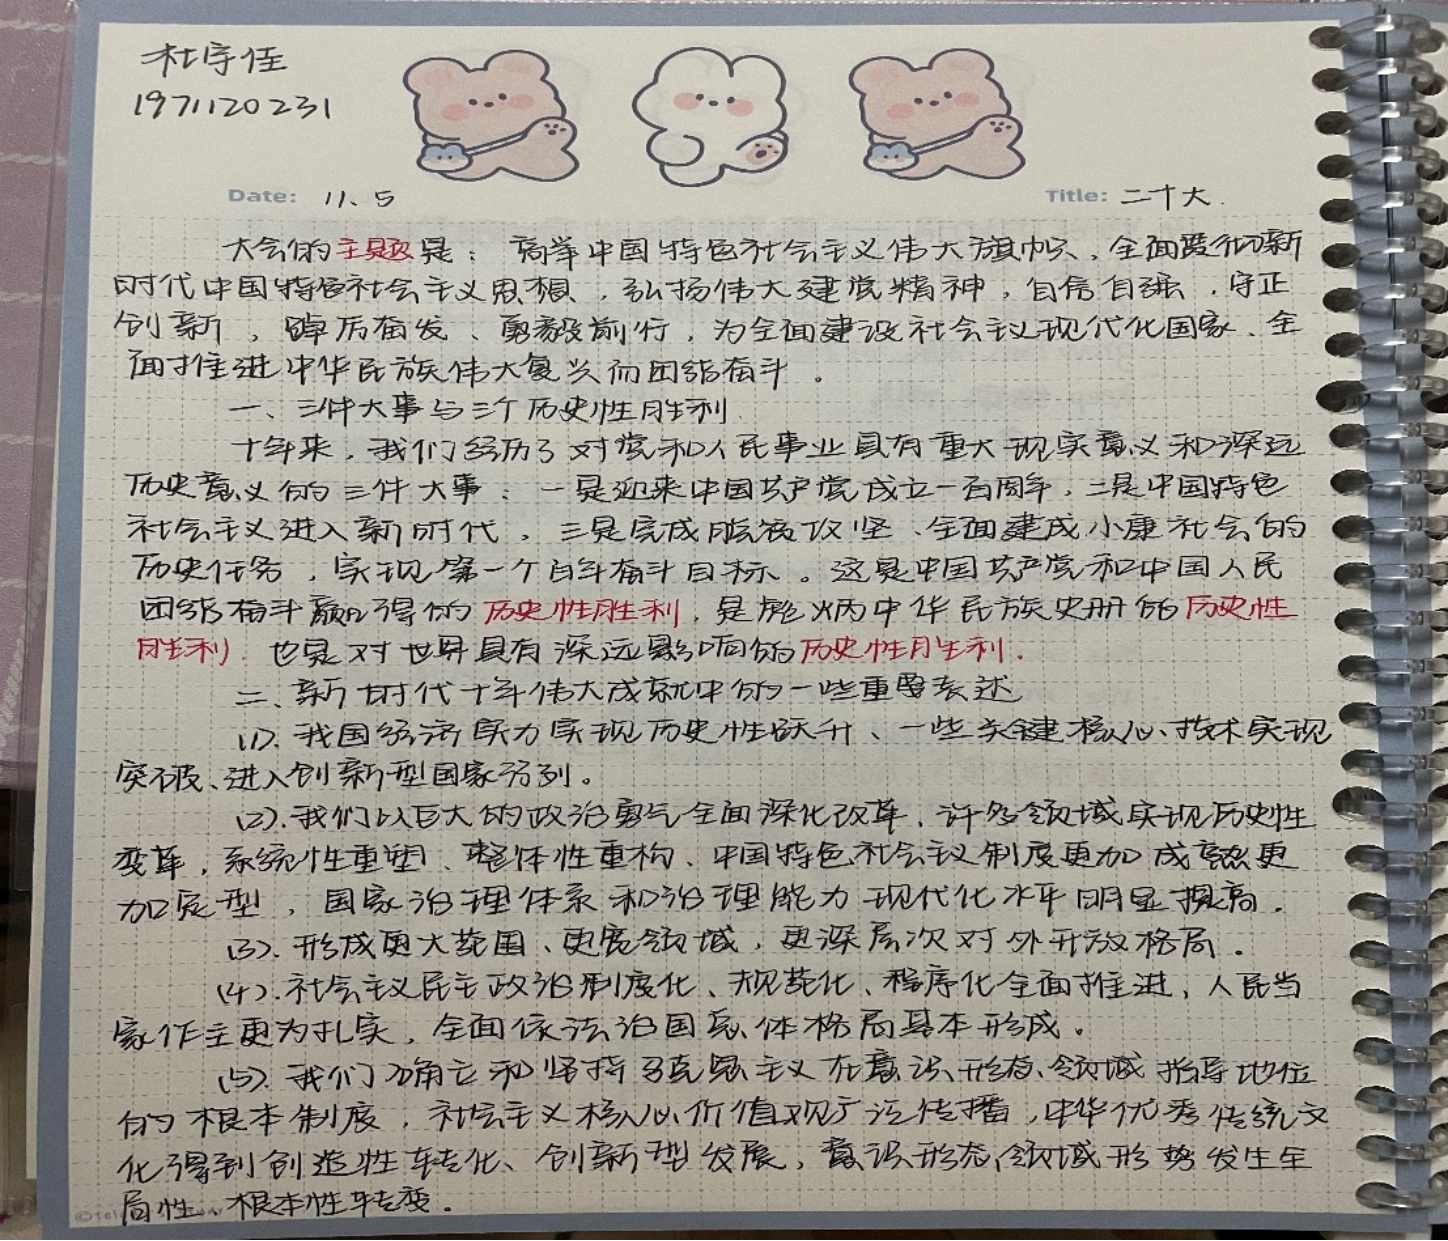 杜宇佳
1971120231
Date: 11.5
Title: 二十大
大会的主题是：高举中国特色社会主义伟大旗帜、全面贯彻新
时代中国特色社会主义思想，弘扬伟大建党精神，自信自强，守正
创新，踔厉奋发、勇毅前行，为全面建设社会主义现代化国家、全
面推进中华民族伟大复兴而团结奋斗。
一、三件大事与三个历史性胜利
十年来，我们经历了对党和人民事业具有重大现实意义和深远
历史意义的三件大事：一是迎来中国共产党成立一百周年，二是中国特色
社会主义进入新时代，三是完成脱贫攻坚、全面建成小康社会的
历史任务，实现第一个百年奋斗目标。这是中国共产党和中国人民
团结奋斗赢得的历史性胜利，是彪炳中华民族史册的历史性
胜利 也是对世界具有深远影响的历史性胜利.
二、新时代十年伟大成就中的一些重要表述
(1).我国经济实力实现历史性跃升、一些关键核心技术实现
突破、进入创新型国家行列。
(2).我们以巨大的政治勇气全面深化改革，许多领域实现历史性
变革，系统性重塑、整体性重构、中国特色社会主义制度更加成熟更
加定型，国家治理体系和治理能力现代化水平明显提高.
(3).形成更大范围、更宽领域，更深层次对外开放格局.
(4).社会主义民主政治制度化、规范化、程序化全面推进，人民当
家作主更为扎实，全面依法治国总体格局基本形成。
(5).我们确立和坚持马克思主义在意识形态领域指导地位
的根本制度，社会主义核心价值观广泛传播，中华优秀传统文
化得到创造性转化、创新型发展，意识形态领域形势发生全
局性、根本性转变.